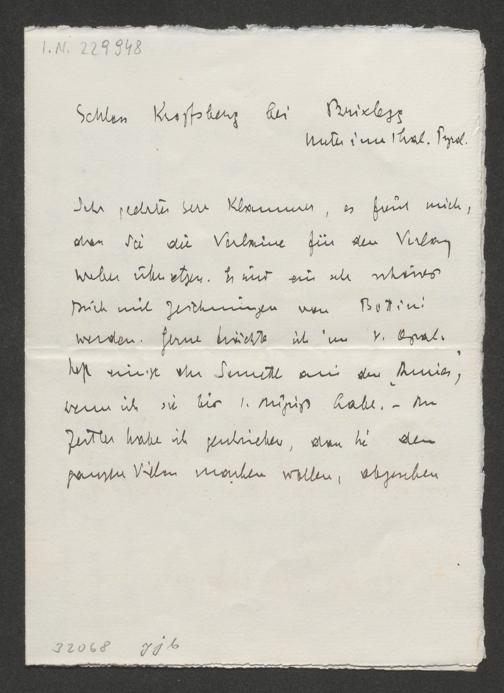 I.N. 229948
Schloss Kropfsberg bei Brixlegg
Unterinnthal. Tyrol.
Sehr geehrter Herr Klammer, es freut mich,
dass Sie die Verlaine für den Verlag
weber übersetzen. Es wird ein sehr schönes
Buch mit Zeichnungen von
werden. Gerne brächte ich im
heft einige der Sonette aus den "Amies",
wenn ich sie bis 1. habe. – An
Zeitler habe ich geschrieben, dass Sie den
ganzen Villon machen wollen, abgesehen
32068